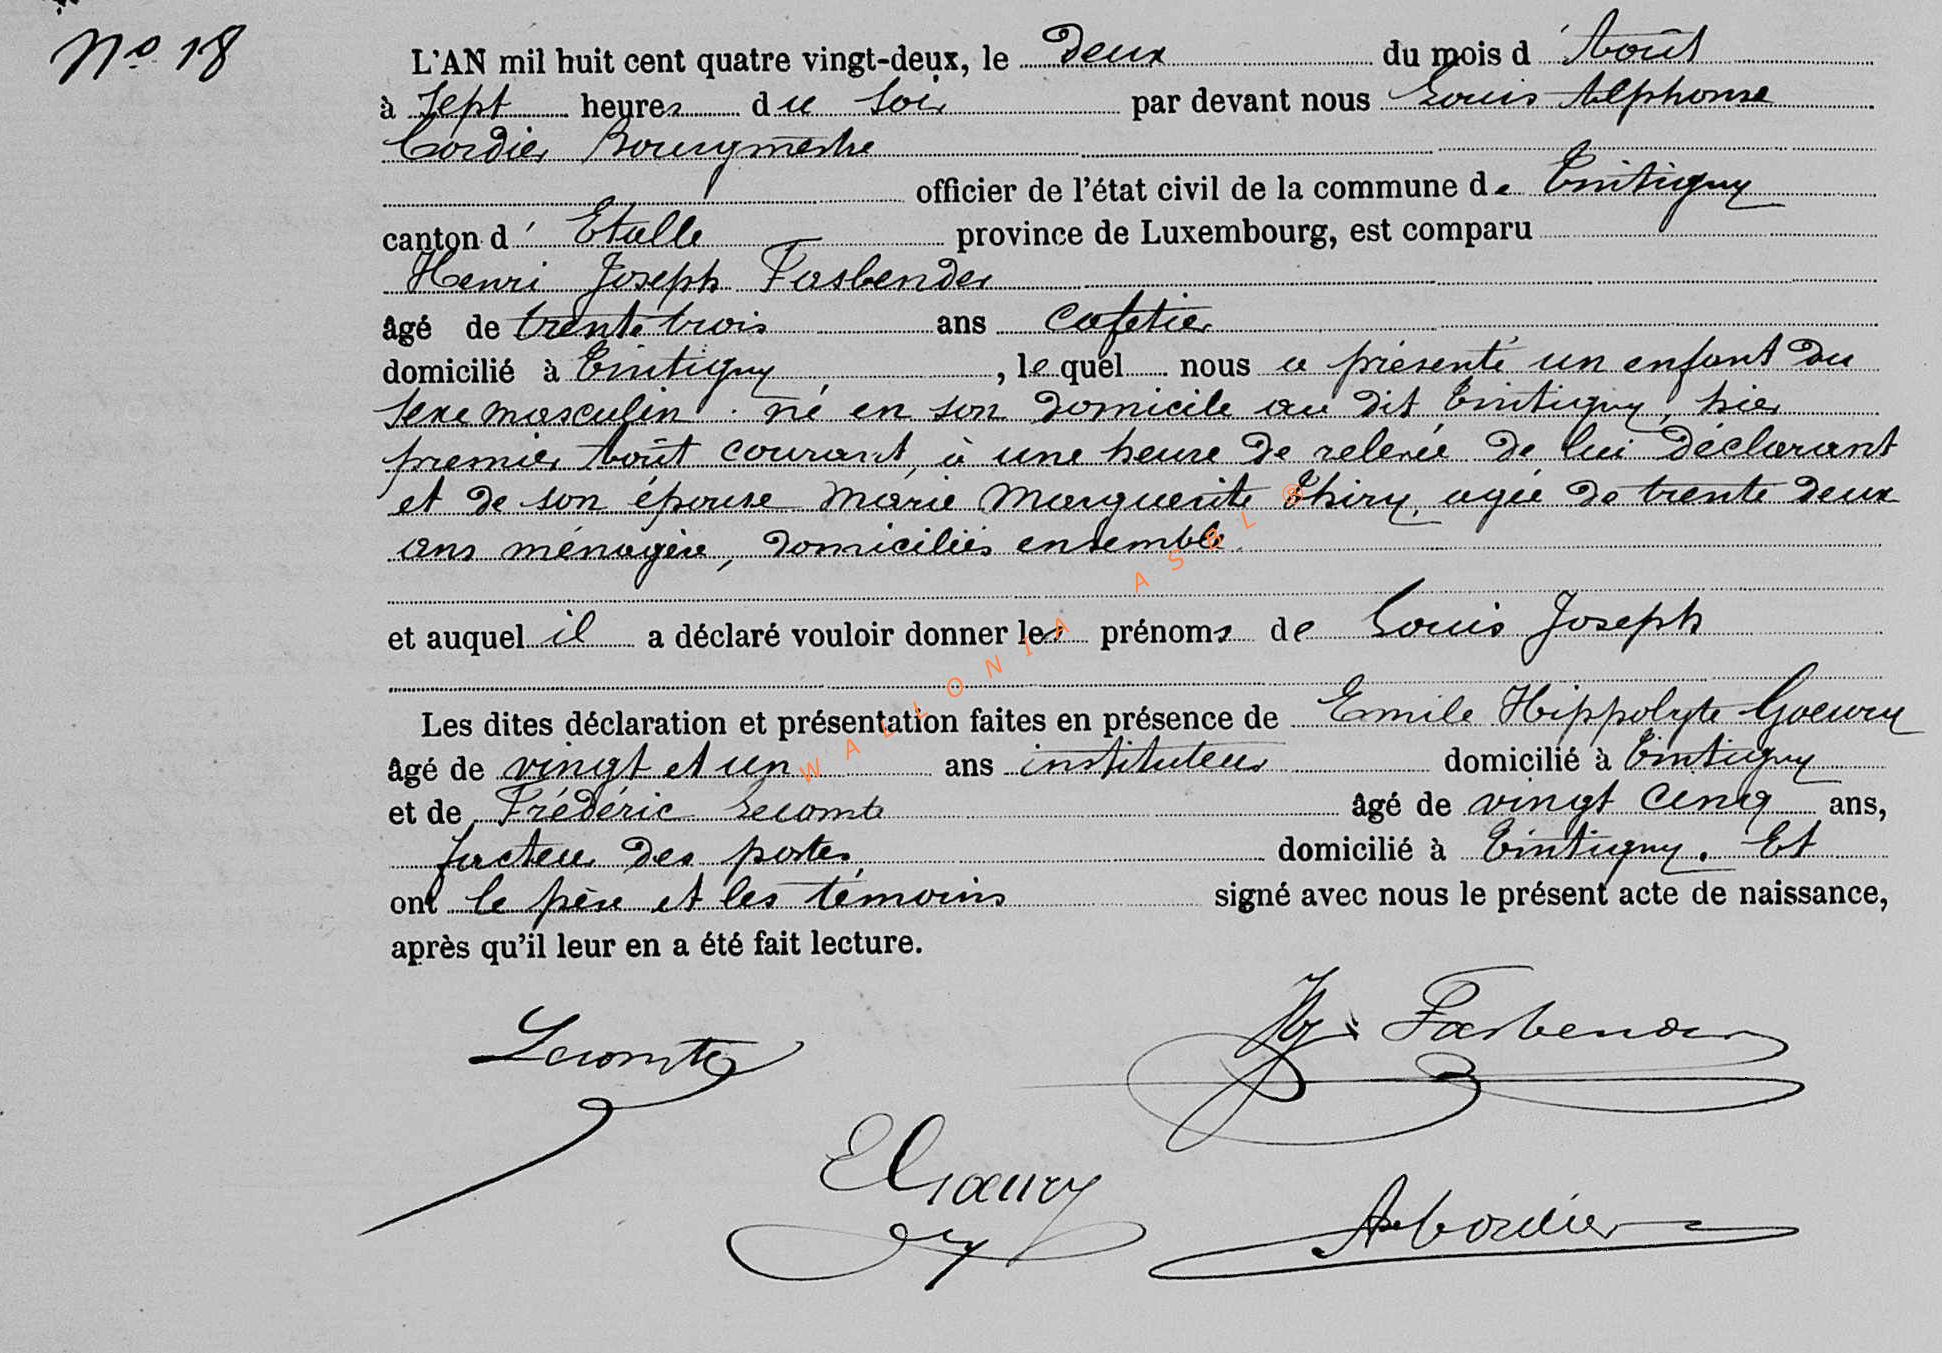 No 18
L'AN mil huit cent quatre vingt-deux, le deux du mois d'Août
à sept heures du soir par devant nous Louis Alphonse
Cordier Bourgmestre
officier de l'état civil de la commune de Tintigny
canton d'Etalle province de Luxembourg, est comparu
Henri Joseph Fasbender
âgé de trente trois ans cafetier
domicilié à Tintigny, lequel nous a présenté un enfant du
sexe masculin. né en son domicile au dit Tintigny, hier
premier Août courant, à une heure de relevée de lui déclarant
et de son épouse Marie Marguerite Thiry, agée de trente deux
ans ménagère, domiciliés ensemble.
et auquel il a déclaré vouloir donner les prénoms de Louis Joseph
Les dites déclaration et présentation faites en présence de Emile Hippolyte Goeury
âgé de vingt et un ans instituteur domicilié à Tintigny
et de Frédéric Lecomte âgé de vingt cinq ans,
facteur des postes domicilié à Tintigny. Et
ont le père et les témoins signé avec nous le présent acte de naissance,
après qu'il leur en a été fait lecture.
Lecomte Fasbender
E Goeury
A Cordier
WALLONIA ASBL ®